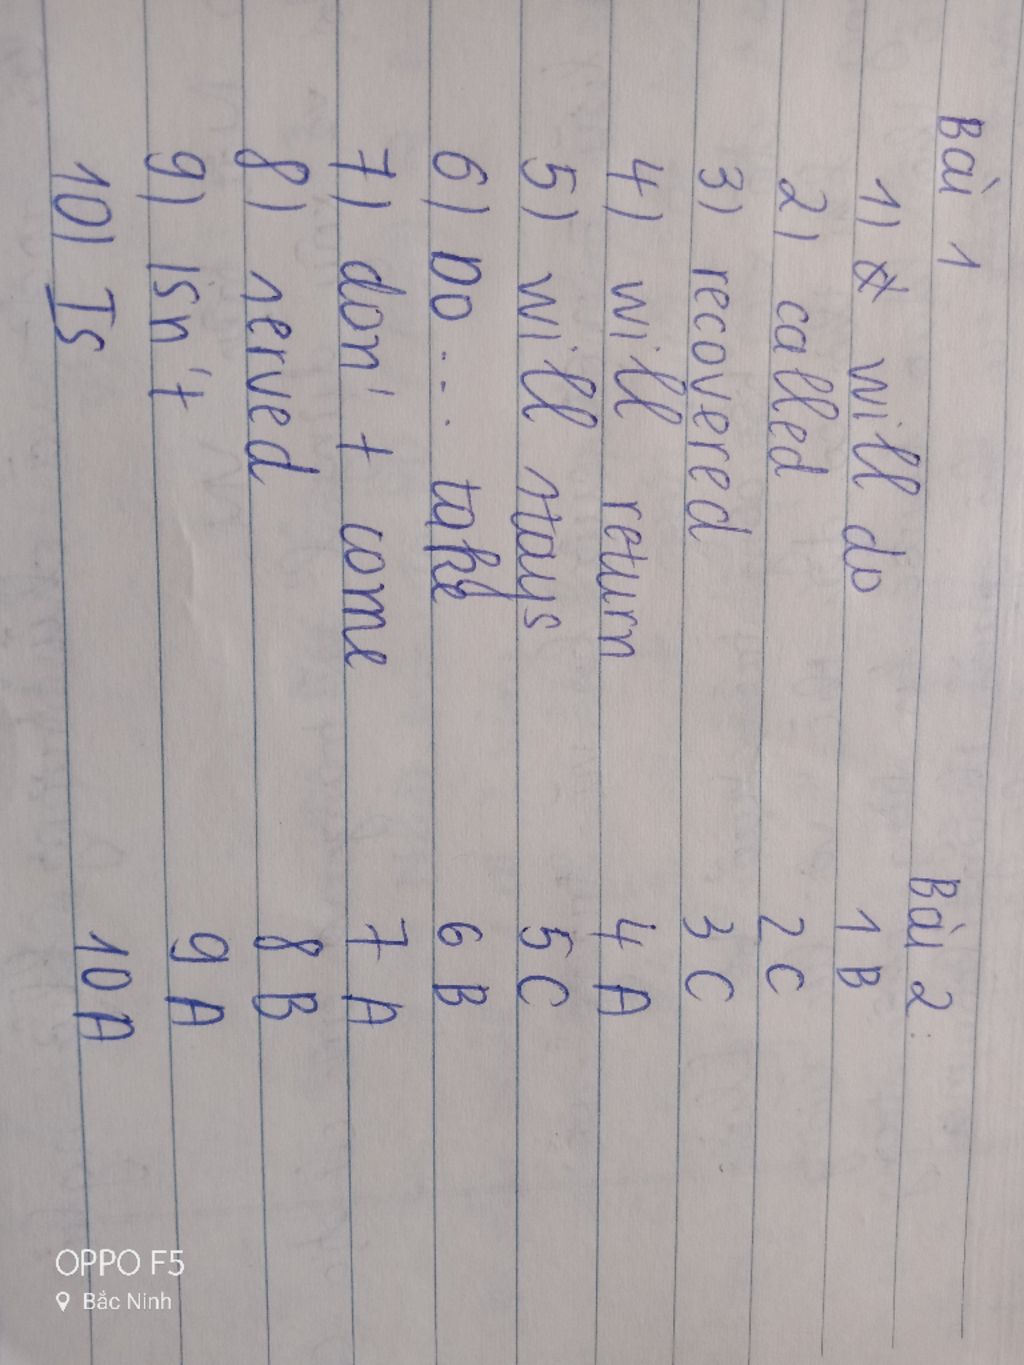 Bài 1
1) will do
2) called
3) recovered
4) will return
5) will stays
6) Do... take
7) don't come
8) served
9) Isn't
10) Is
Bài 2:
1 B
2 C
3 C
4 A
5 C
6 B
7 A
8 B
9 A
10 A
OPPO F5
Bắc Ninh